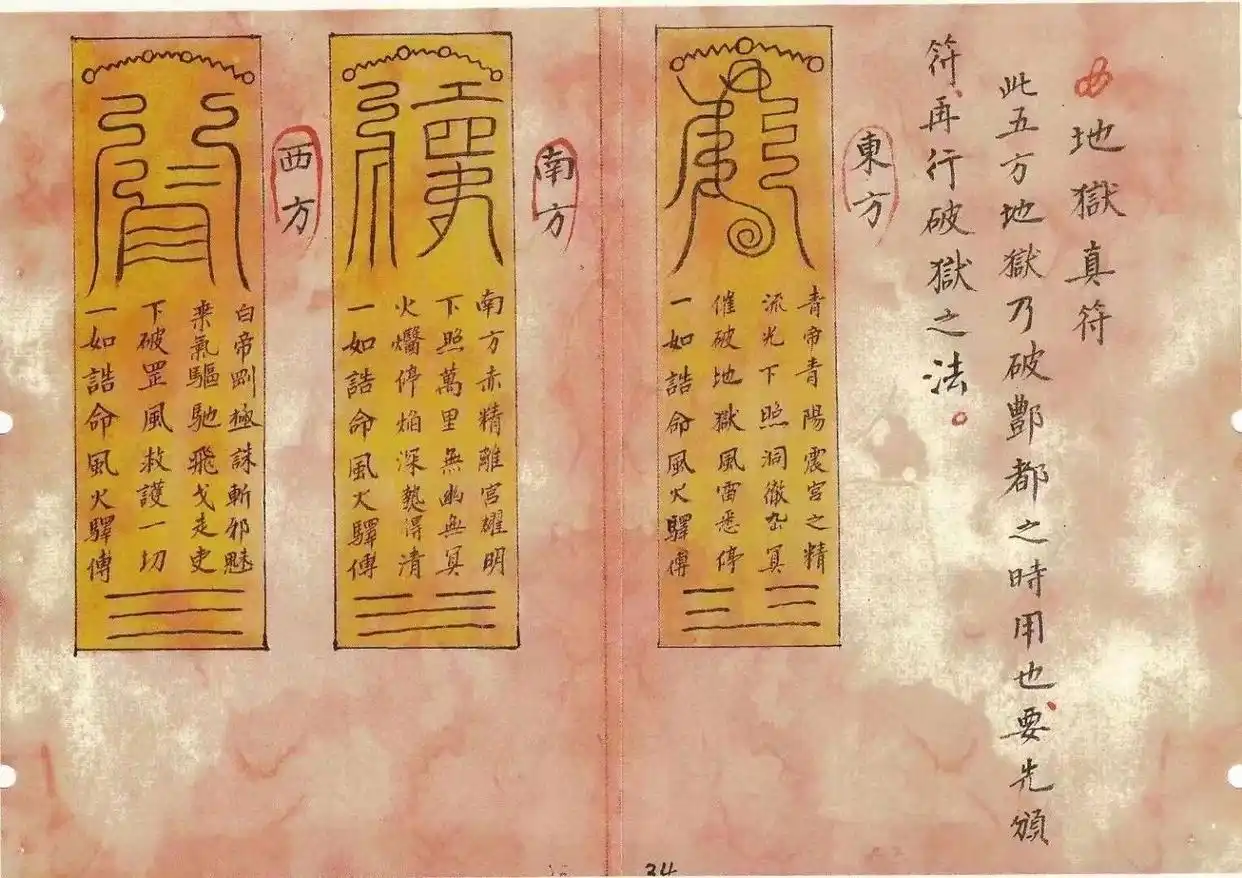 地獄真符
此五方地獄乃破酆都之時用也、要先頒
符、再行破獄之法。
東方
青帝青陽震宮之精
流光下照洞徹幽冥
催破地獄風雷悉停
一如誥命風火驛傳
南方
南方赤精離宮耀明
下照萬里無幽無冥
火爥停焰深㔟得清
一如誥命風火驛傳
西方
白帝剛極誅斬邪魅
乘氣驅馳飛戈走吏
下破罡風救護一切
一如誥命風火驛傳
34